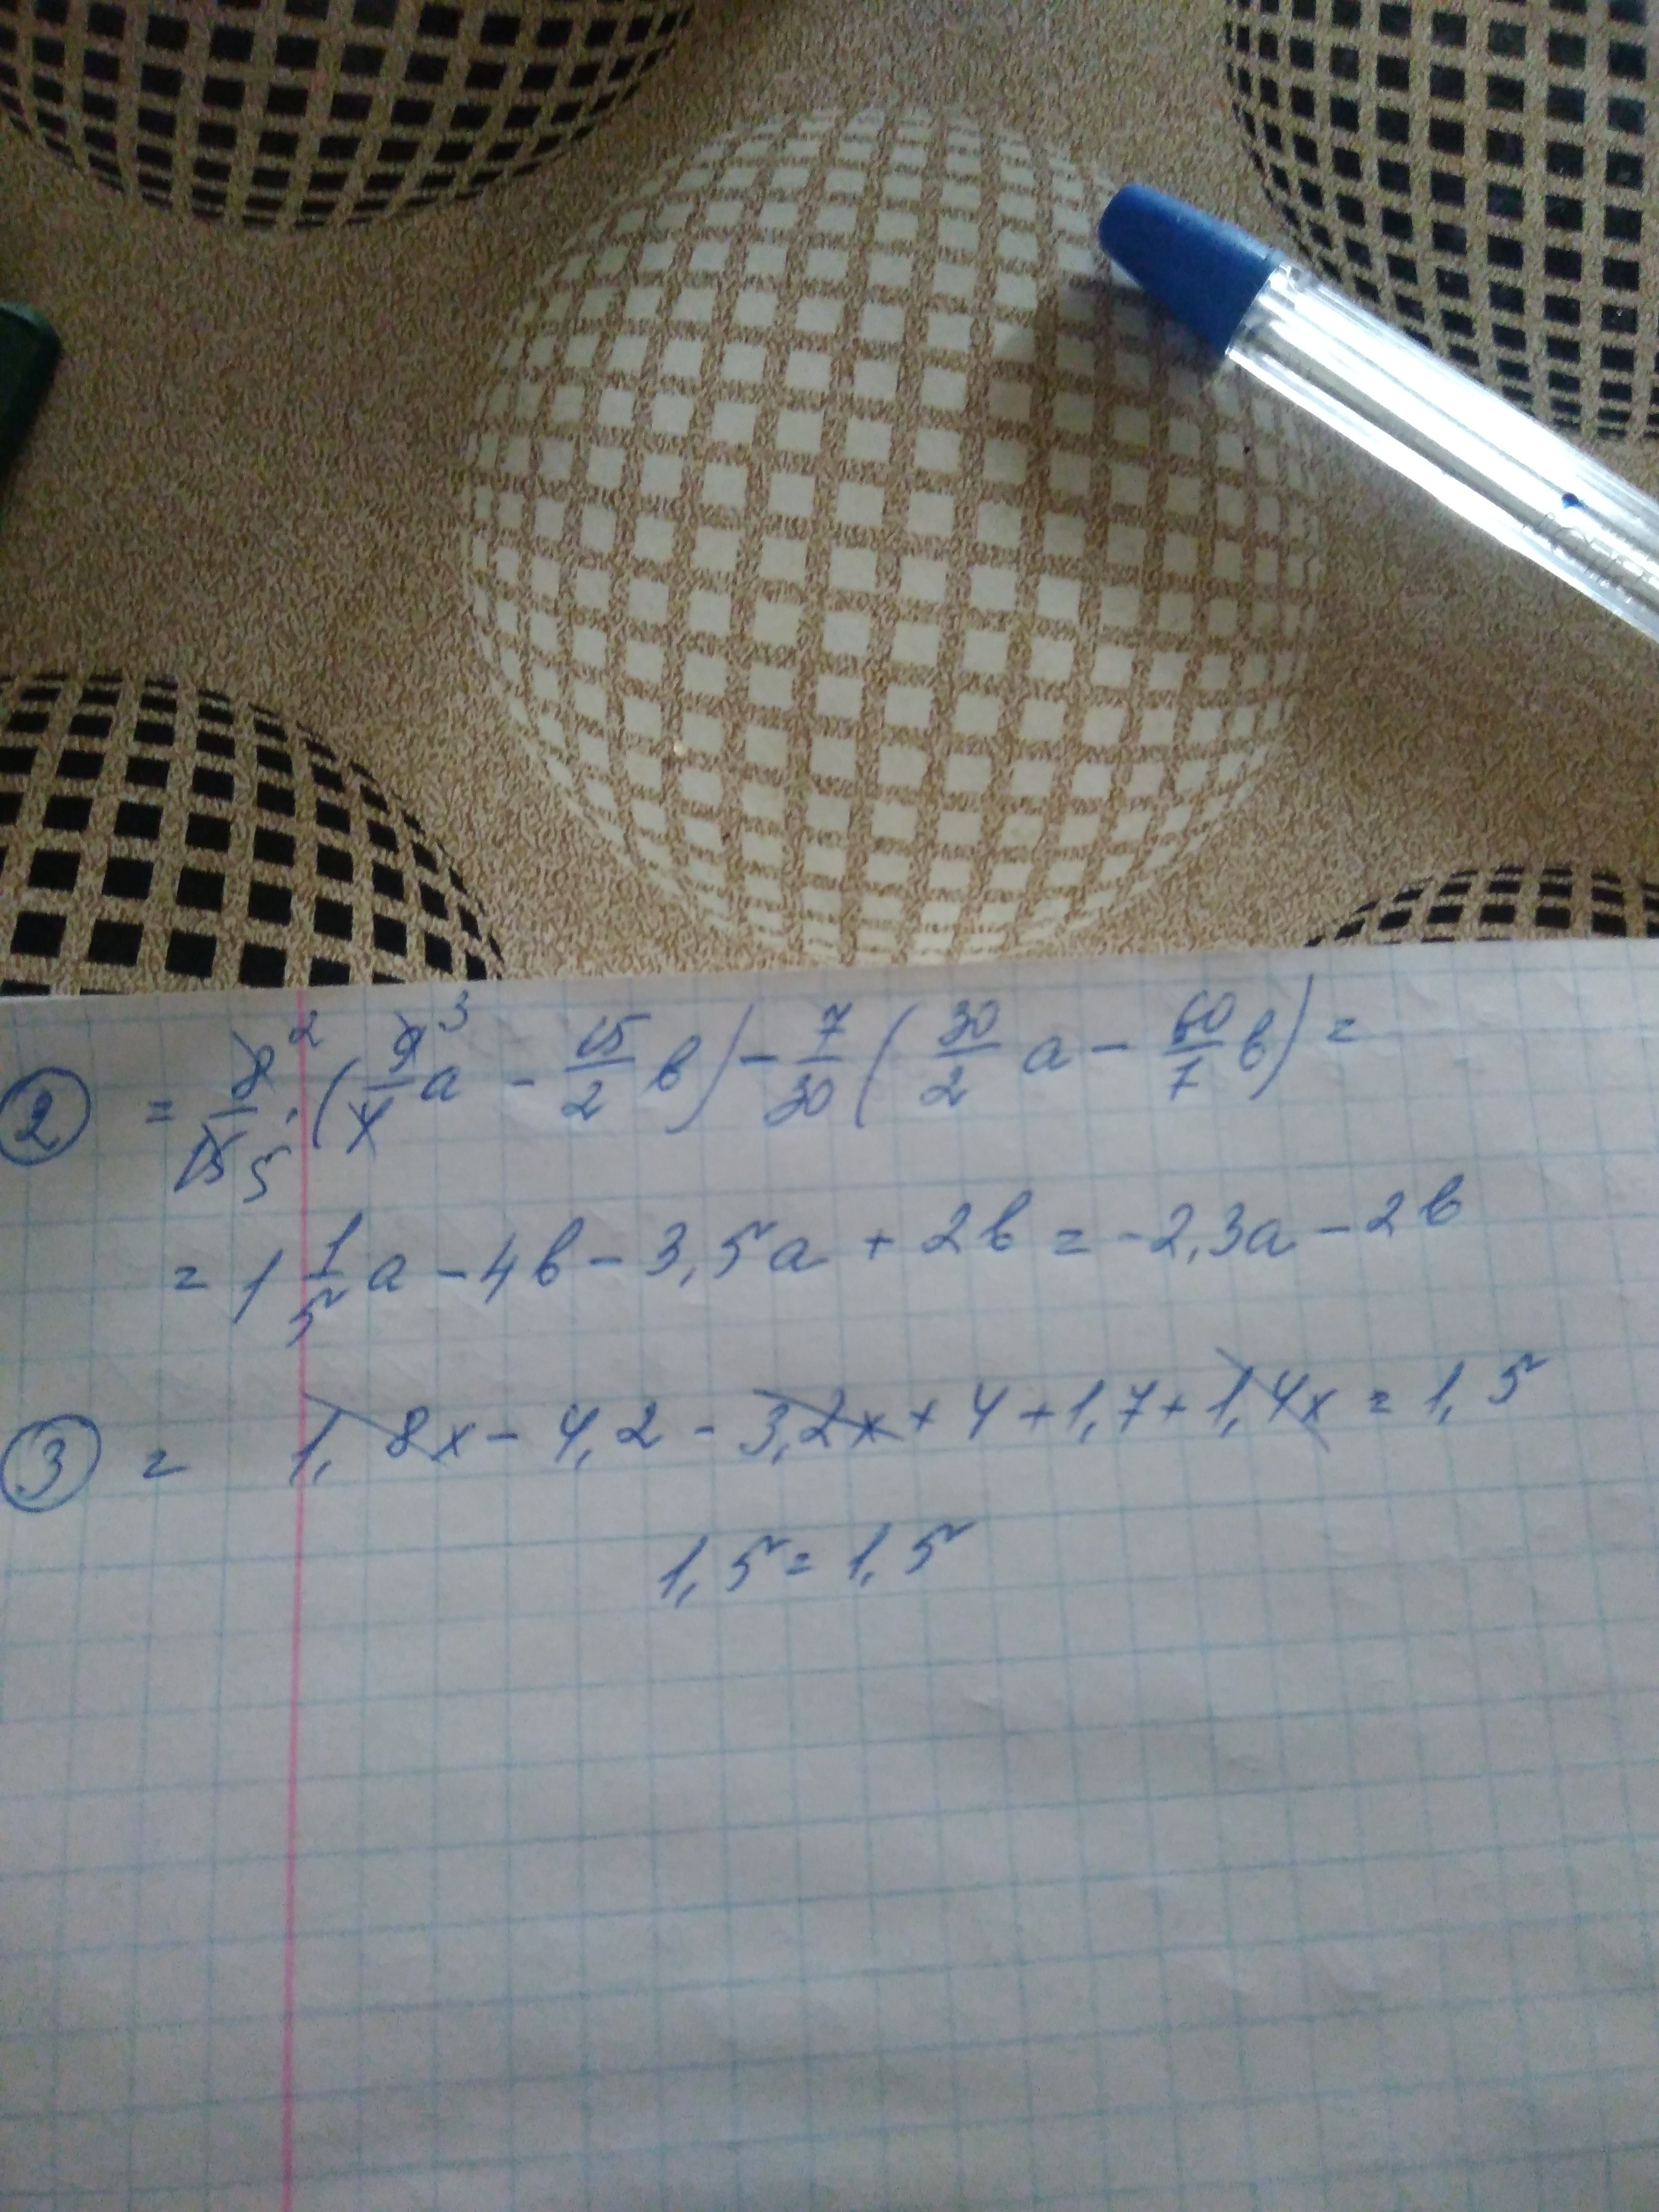 ② = 8/15 2/5 · (9/4 3 a - 15/2 b) - 7/30 (30/2 a - 60/7 b) =
= 1 1/5 a - 4b - 3,5a + 2b = -2,3a - 2b
③ = 1,8x - 4,2 - 3,2x + 4 + 1,7 + 1,4x = 1,5
1,5 = 1,5